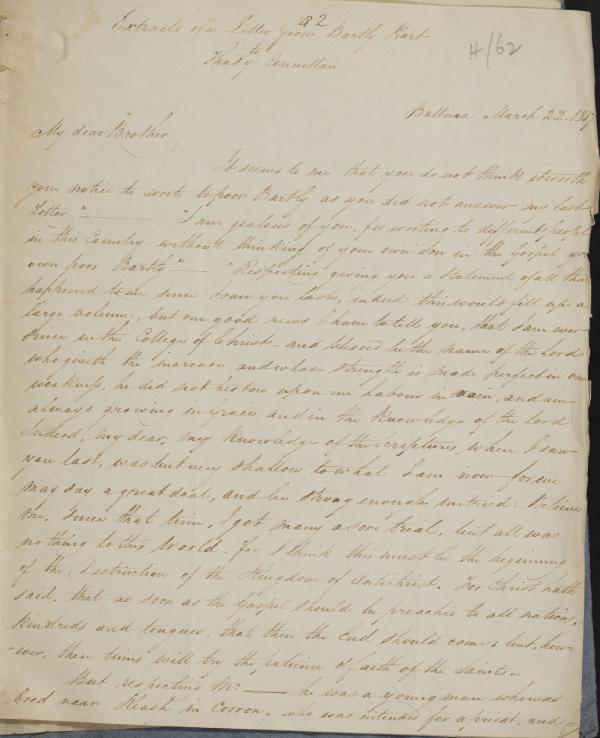 92
Extracts of a Letter from Bartly Hart
to
Thady Connellan
H/62
Ballina March 22. 18
My dear Brother
It seems to me that you do not think it worth
your notice to write to poor Bartly as you did not answer my last
Letter "——— "I am jealous of you, for writing to different people
in this Country, without thinking of your own Son in the Gospel, your
own poor Bartly"— "Respecting giving you a Statement of all that
happened to me since I saw you last, indeed this would fill up a
large volume, but one good news I have to tell you, that I am ever
since in the College of Christ - and blessed be the name of the Lord
who giveth the increase and whose strength is made perfect in our
weakness, he did not bestow upon me labour in vain, and am
always growing in Grace and in the Knowledge of the Lord
Indeed, my dear, my Knowledge of the Scriptures, when I saw
you last, was but very shallow to what I am now for we
may say a great deal, and be strong enough untried: believe
me, since that time, I got many a sore trial, but all was
nothing to this World. for I think this must be the beginning
of the Destruction of the Kingdom of Antichrist. For Christ hath
said, that as soon as the Gospel should be preached to all nations,
Kindreds and tongues, that then the End should come; but, how-
ever, these times will try the patience & faith of the Saints -
But respecting Mr. ——— he was a young man who was
bred near Keash in Corron, who was intended for a priest, and